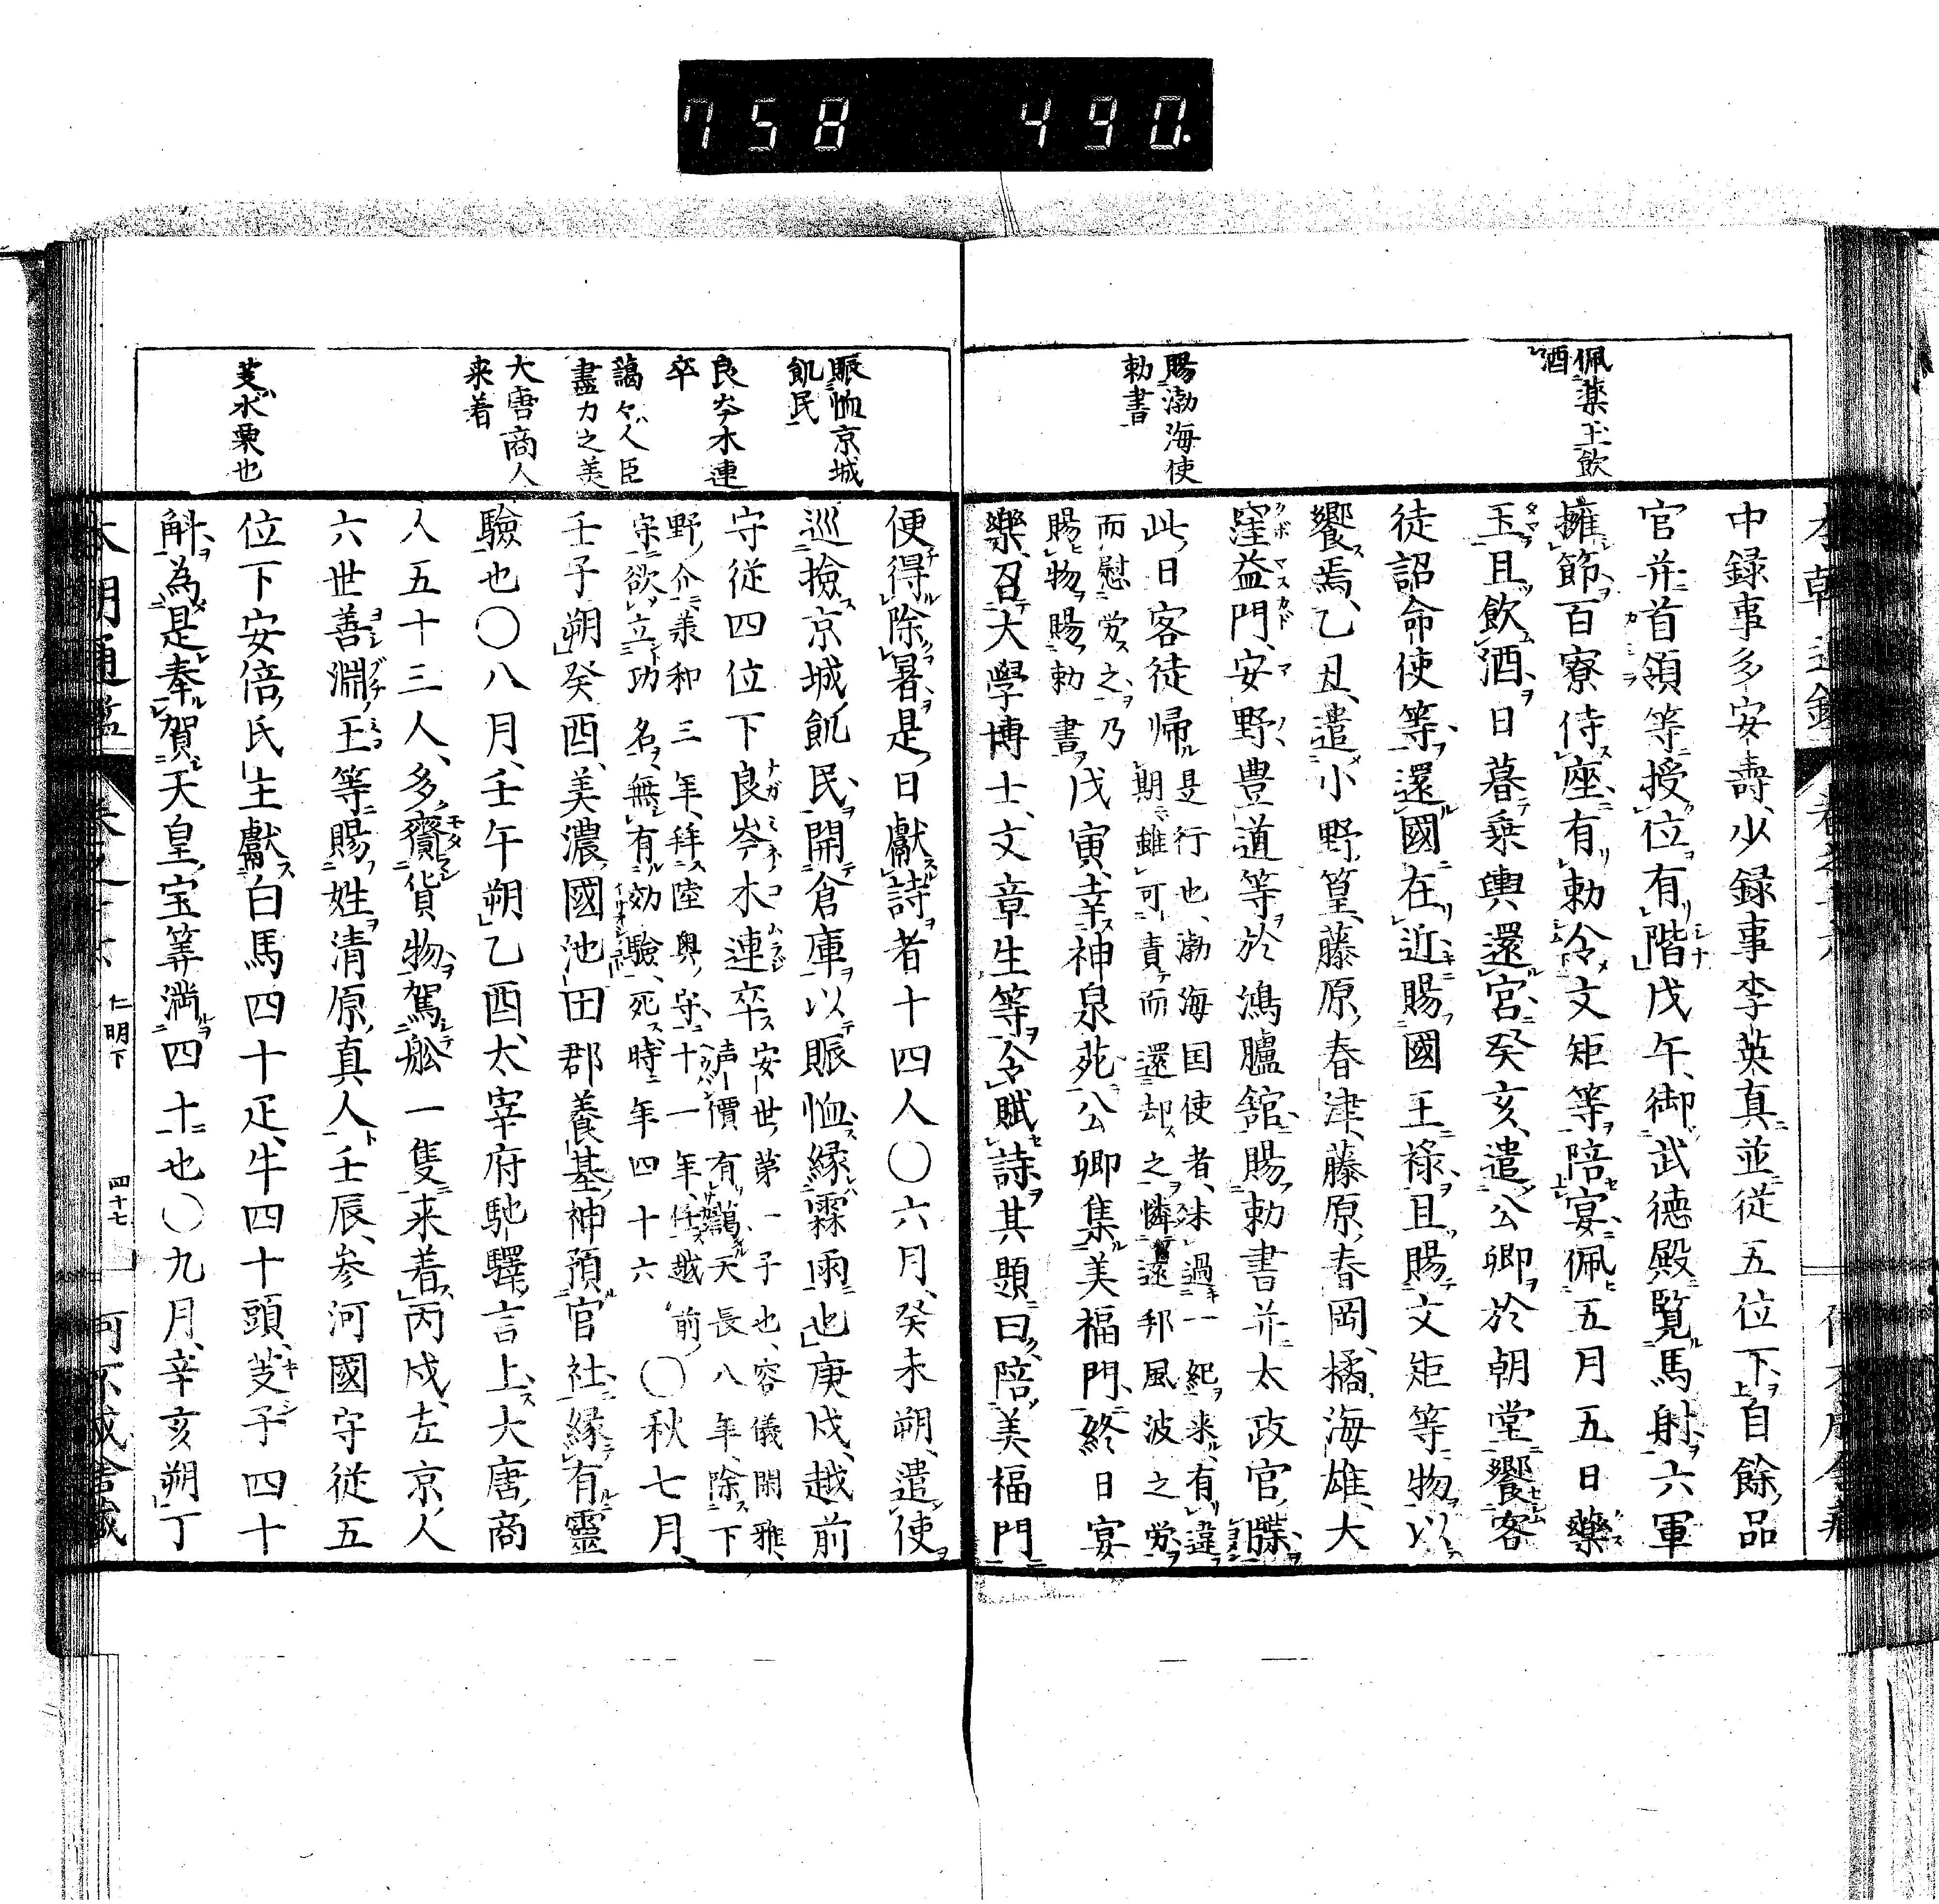 758 490.
佩藥玉飲
酒
賜渤海使
勅書
中録事多安壽、少録事李英真並従五位下、自餘品
官并首領等授位有階戊午、御武德殿覧馬射、六軍
擁節百寮侍座、有勅令文矩等陪宴、佩五月五日藥
玉且飲酒、日暮乗輿還宮、癸亥、遣公卿於朝堂饗客
徒詔命使等還國在近賜國王禄、且賜文矩等物以
饗焉、乙丑、遣小野篁、藤原春津、藤原春岡、橘海雄、大
窪益門、安野豊道等於鴻臚舘、賜勅書并太政官牒
此日客徒帰
是行也、渤海国使者、未過一紀来、有違
期、雖可責而還却之憐遠邦風波之労
而慰労之、乃
賜物賜勅書
戊寅、幸神泉苑、公卿集美福門、終日宴
樂、召大學博士、文章生等、令賦詩、其題曰、陪美福門
賑恤京城
飢民
良岑木連
卒
藹々人臣
盡力之美
大唐商人
来着
芰水栗也
便得除暑、是日獻詩者十四人〇六月、癸未朔、遣使
巡撿京城飢民、開倉庫以賑恤、縁霖雨也庚戌、越前
守従四位下良岑木連卒
安世第一子也、容儀閑雅、
声價有藹天長八年、除下
野介羕和三年、拜陸奥守、十一年、任越前
守欲立功名、無有効驗、死時年四十六
〇秋七月、
壬子朔癸酉、美濃國池田郡養基神預官社、縁有靈
驗也〇八月、壬午朔乙酉、太宰府馳驛、言上、大唐商
人五十三人、多齎貨物、駕舩一隻来着、丙戌、左京人
六世善淵王等賜姓清原真人、壬辰、参河國守従五
位下安倍氏主獻白馬四十疋、牛四十頭、芰子四十
斛、為是奉賀天皇宝筭満四十也〇九月、辛亥朔丁
仁明下
四十七